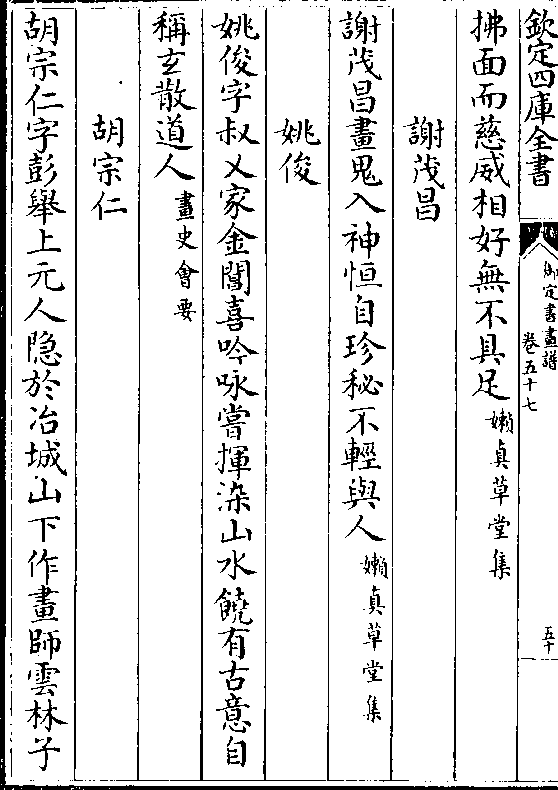 欽定四庫全書
御定書畫譜
卷五十七
五十
拂面而慈威相好無不具足嬾真草堂集
謝茂昌
謝茂昌畫鬼入神恒自珍秘不輕與人嬾真草堂集
姚俊
姚俊字叔乂家金閶喜吟咏嘗揮染山水饒有古意自
稱玄散道人畫史會要
胡宗仁
胡宗仁字彭舉上元人隐於冶城山下作畫師雲林子